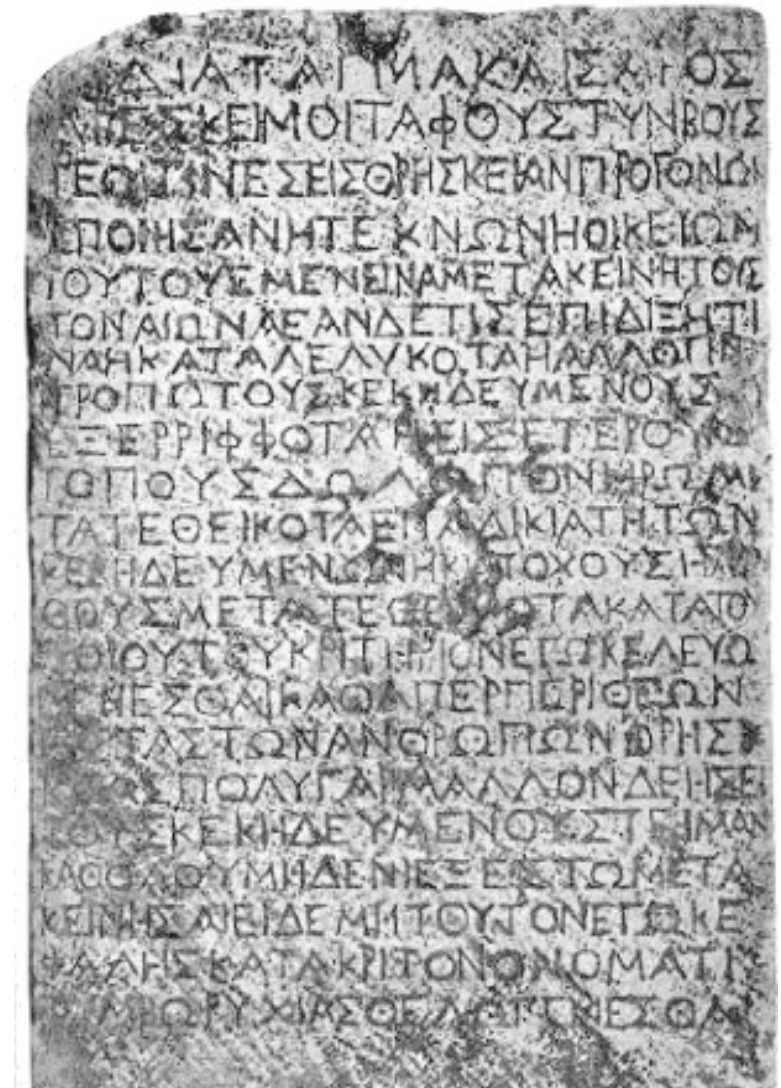 ΔΙΑΤΑΓΜΑ ΚΑΙΣΑΡΟΣ
ΑΡΕΣΚΕΙ ΜΟΙ ΤΑΦΟΥΣ ΤΥΝΒΟΥΣ
ΤΕ ΟΙΤΙΝΕΣ ΕΙΣ ΘΡΗΣΚΕΙΑΝ ΠΡΟΓΟΝΩΝ
ΕΠΟΙΗΣΑΝ Η ΤΕΚΝΩΝ Η ΟΙΚΕΙΩΝ
ΤΟΥΤΟΥΣ ΜΕΝΕΙΝ ΑΜΕΤΑΚΕΙΝΗΤΟΥΣ
ΤΟΝ ΑΙΩΝΑ ΕΑΝ ΔΕ ΤΙΣ ΕΠΙΔΙΞΗ ΤΙ
ΝΑ Η ΚΑΤΑΛΕΛΥΚΟΤΑ Η ΑΛΛΩ ΤΙΝΙ
ΤΡΟΠΩ ΤΟΥΣ ΚΕΚΗΔΕΥΜΕΝΟΥΣ
ΕΞΕΡΡΙΦΦΟΤΑ Η ΕΙΣ ΕΤΕΡΟΥΣ
ΤΟΠΟΥΣ ΔΩΛΩ ΠΟΝΗΡΩ ΜΕ
ΤΑΤΕΘΕΙΚΟΤΑ ΕΠ ΑΔΙΚΙΑ ΤΗ ΤΩΝ
ΚΕΚΗΔΕΥΜΕΝΩΝ Η ΚΑΤΟΧΟΥΣ Η ΛΙ
ΘΟΥΣ ΜΕΤΑΤΕΘΕΙΚΟΤΑ ΚΑΤΑ ΤΟΥ
ΤΟΙΟΥΤΟΥ ΚΡΙΤΗΡΙΟΝ ΕΓΩ ΚΕΛΕΥΩ
ΓΕΝΕΣΘΑΙ ΚΑΘΑΠΕΡ ΠΕΡΙ ΘΕΩΝ
ΤΑΣ ΤΩΝ ΑΝΘΡΩΠΩΝ ΘΡΗΣ
ΚΙΑΣ ΠΟΛΥ ΓΑΡ ΜΑΛΛΟΝ ΔΕΗΣΕΙ
ΤΟΥΣ ΚΕΚΗΔΕΥΜΕΝΟΥΣ ΤΕΙΜΑΝ
ΚΑΘΟΛΟΥ ΜΗΔΕΝΙ ΕΞΕΣΤΩ ΜΕΤΑ
ΚΕΙΝΗΣΑΙ ΕΙ ΔΕ ΜΗ ΤΟΥΤΟΝ ΕΓΩ ΚΕ
ΦΑΛΗΣ ΚΑΤΑΚΡΙΤΟΝ ΟΝΟΜΑΤΙ
ΤΥΜΒΩΡΥΧΙΑΣ ΘΕΛΩ ΓΕΝΕΣΘΑΙ